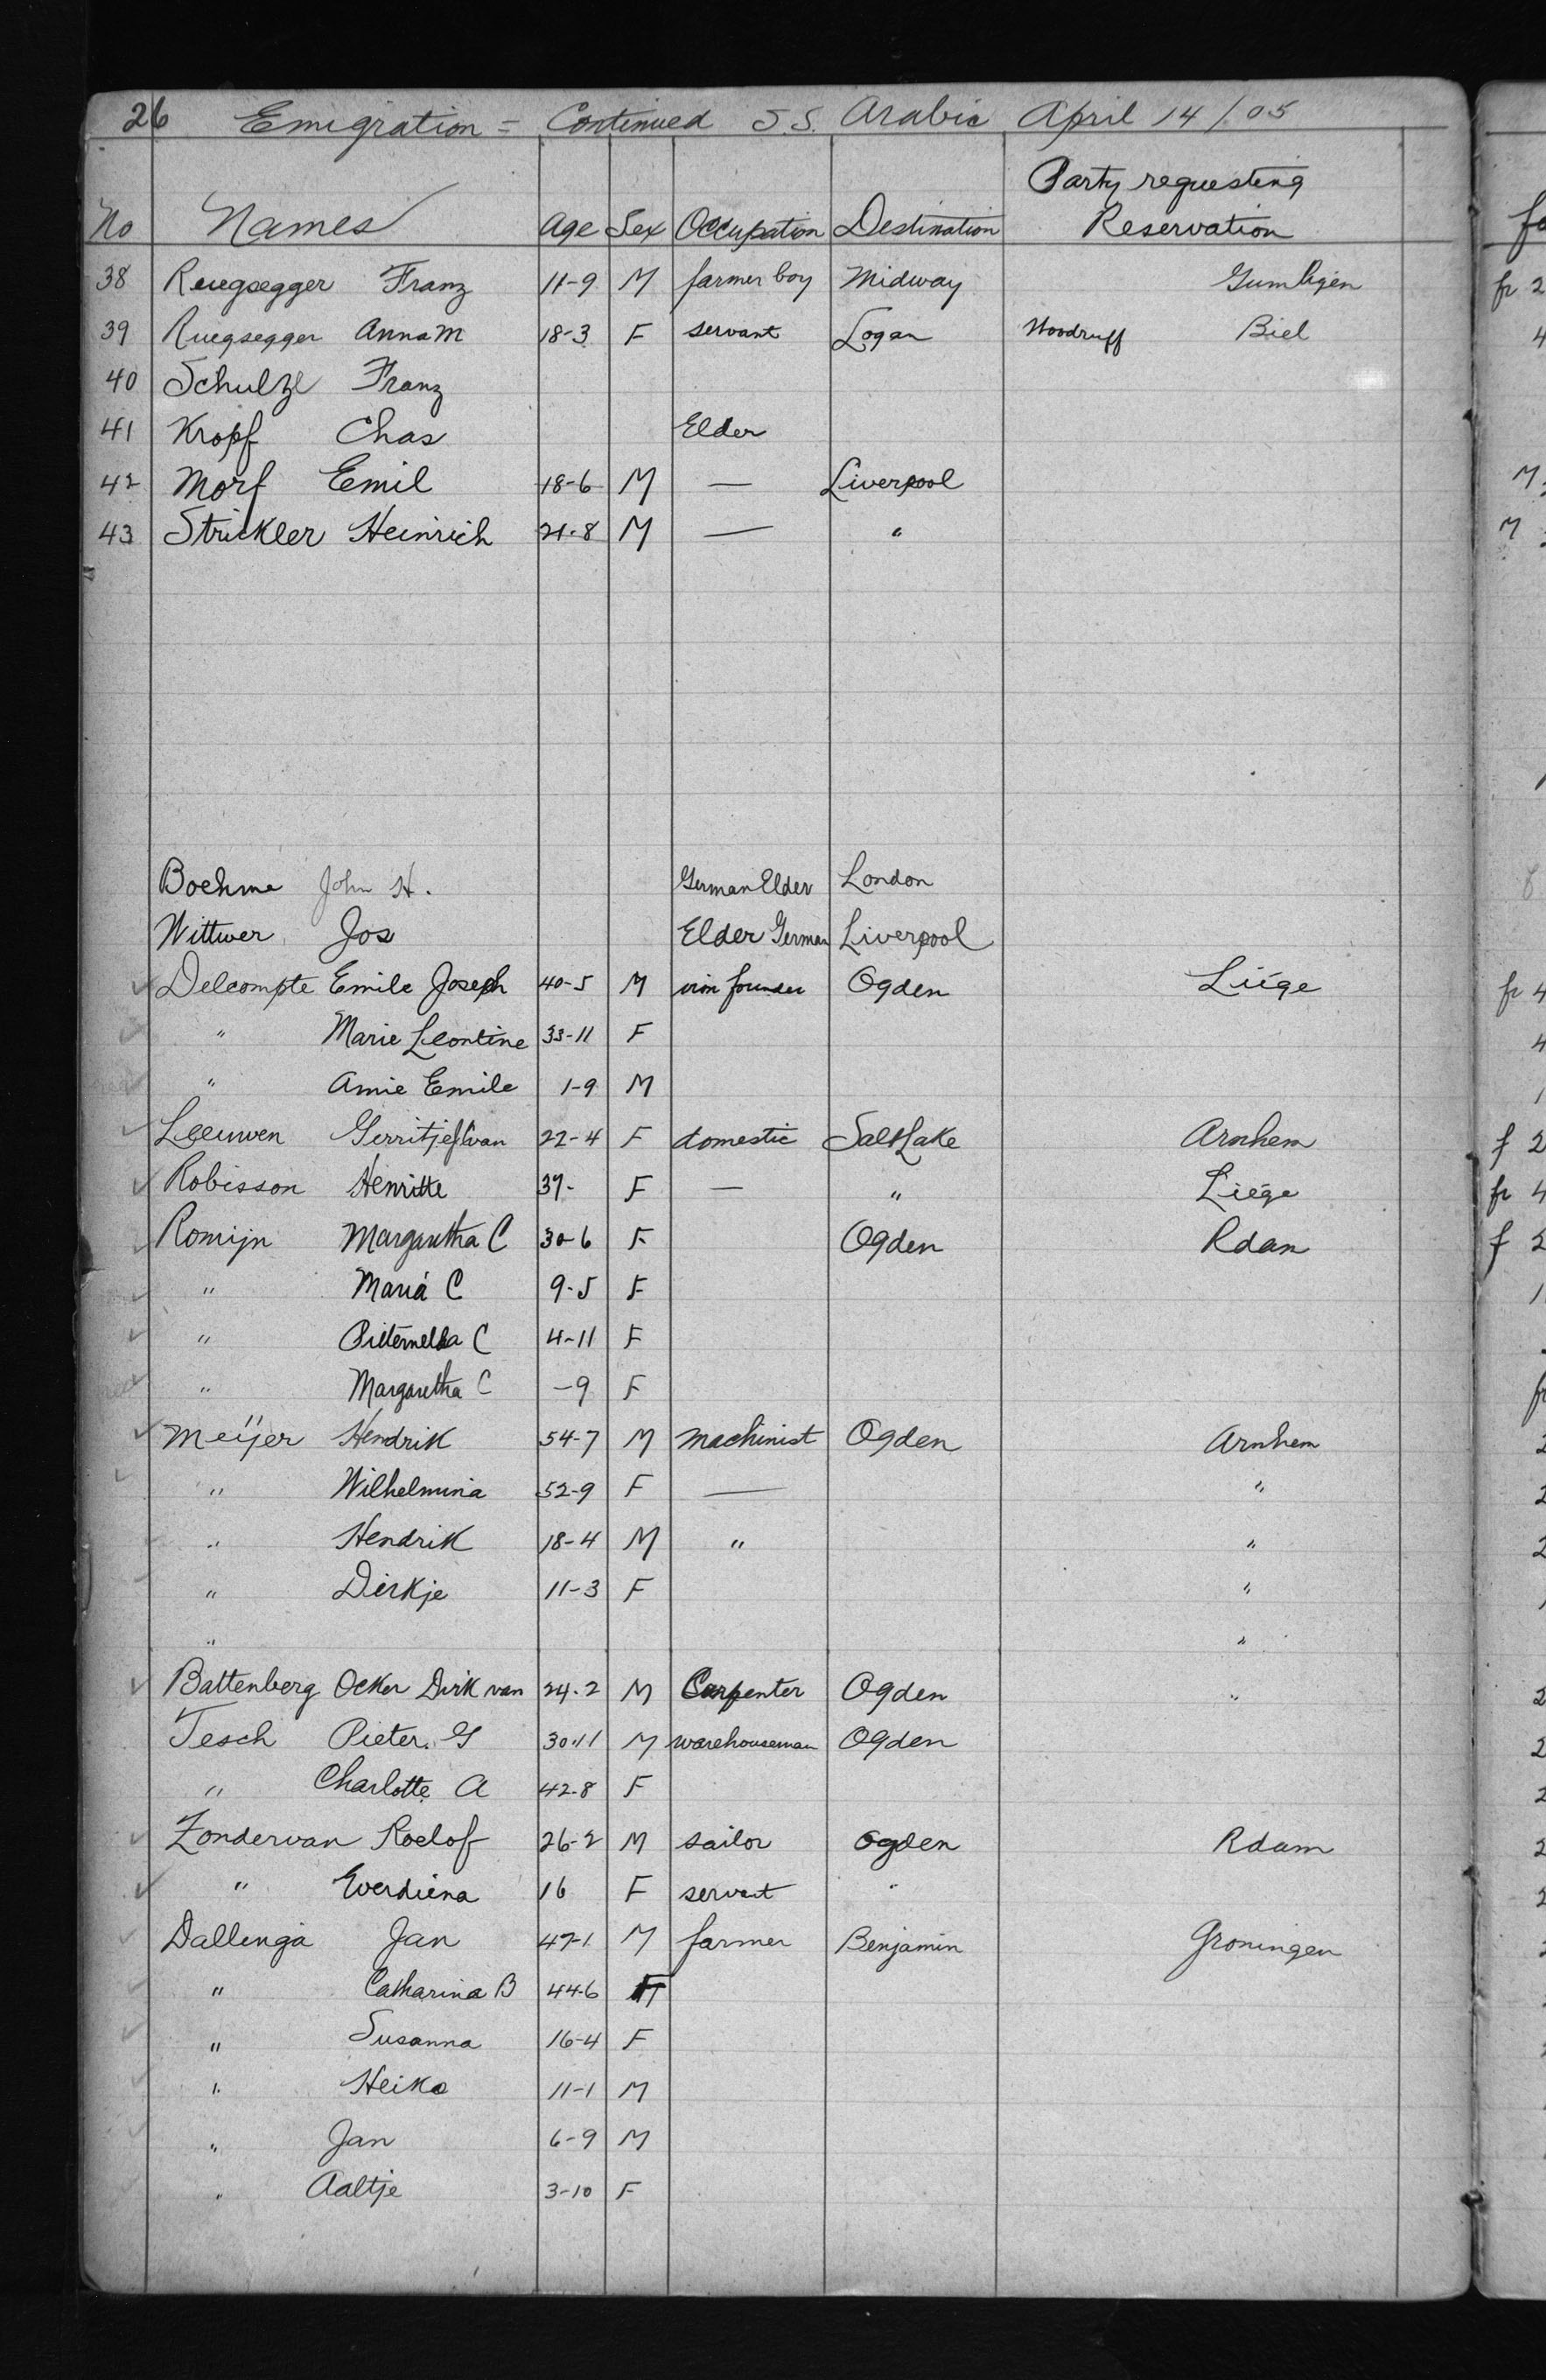 26 Emigration = Continued S S. Arabic April 14/05
Party requesting
No Names Age Sex Occupation Destination Reservation
38 Ruegsegger Franz 11-9 M farmer boy Midway Gumligen
39 Ruegsegger Anna M 18-3 F servant Logan Woodruff Biel
40 Schulze Franz
41 Kropf Chas Elder
42 Morf Emil 18-6 M — Liverpool
43 Strickler Heinrich 21-8 M — "
Boehme John H. German Elder London
Wittwer Jos Elder German Liverpool
Delcompte Emile Joseph 40-5 M iron founder Ogden Liége
" Marie Leontine 33-11 F
" Amie Emile 1-9 M
Leeuwen Gerritje van 22-4 F domestic Salt Lake Arnhem
Robisson Henritte 39- F — " Liége
Romijn Margaretha C 30-6 F Ogden Rdam
" Maria C 9-5 F
" Pieternella C 4-11 F
" Margaretha C -9 F
Meijer Hendrik 54-7 M machinist Ogden Arnhem
" Wilhelmina 52-9 F — "
" Hendrik 18-4 M " "
" Dirkje 11-3 F "
" "
Battenberg Ocker Dirk van 24-2 M Carpenter Ogden "
Tesch Pieter. G 30-11 M warehouseman Ogden
" Charlotte A 42-8 F
Zondervan Roelof 26-2 M sailor Ogden Rdam
" Everdiena 16 F servant "
Dallenga Jan 47-1 M farmer Benjamin Groningen
" Catharina B 44-6 F
" Susanna 16-4 F
" Heiko 11-1 M
" Jan 6-9 M
" Aaltje 3-10 F